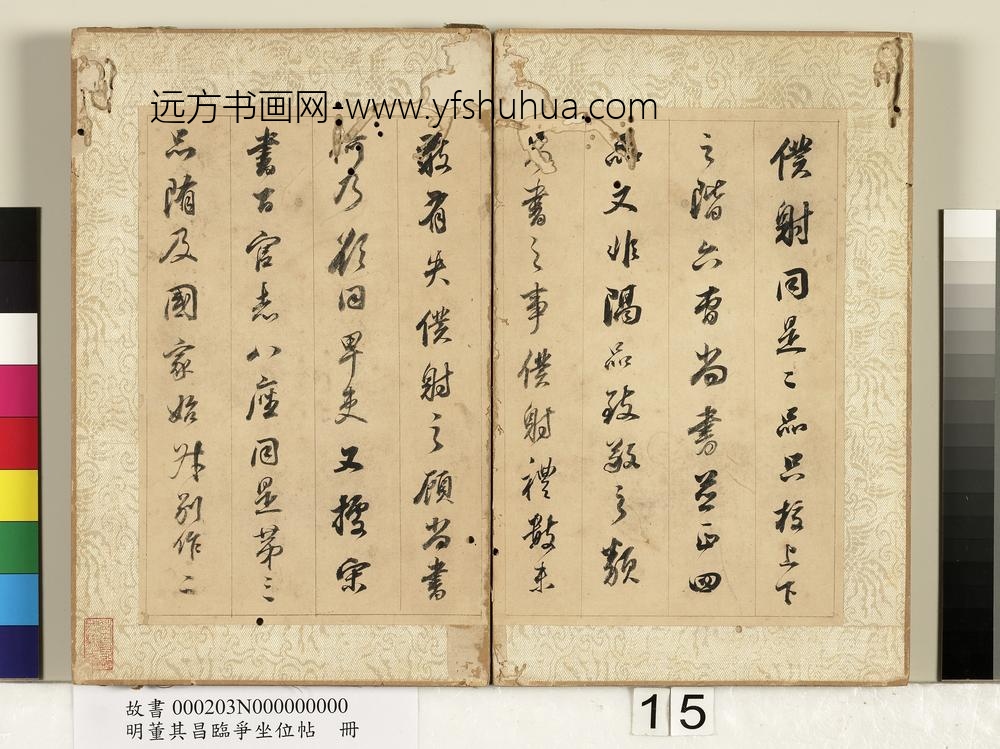 远方书画网 www.yfshuhua.com
僕射同是二品只校上下
之階六曹尚書並正四
品又非隔品致敬之類
尚書之事僕射禮數未
敢有失僕射之顧尚書
何乃欲同卑吏又據宋
書百官志八座同是第三
品隋及國家始升別作二
故書 000203N000000000
明董其昌臨爭坐位帖 冊
15